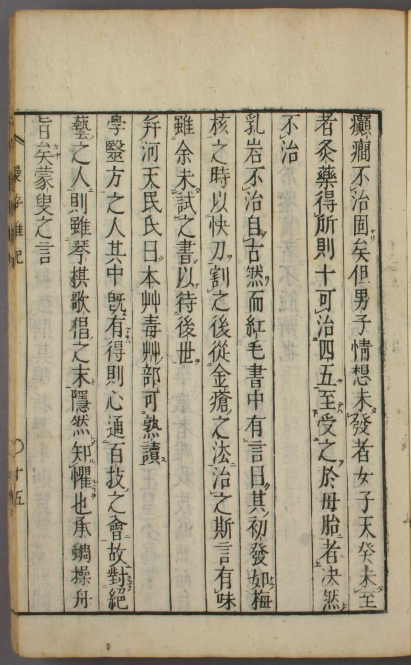 癲癇不治固矣但男子情想未發者女子天癸未至
者灸藥得所則十可治四五至受之於母胎者决然
不治
乳岩不治自古然而紅毛書中有言曰其初發如梅
核之時以快刀割之後從金瘡之法治之斯言有味
雖余未試之書以待後世
弁河天民氏曰本艸毒艸部可熟讀
學毉方之人其中旣有得則心通百技之會故對絕
藝之人則雖琴棋歌倡之末隱然知懼也承蜩操舟
旨矣蒙叟之言
十五